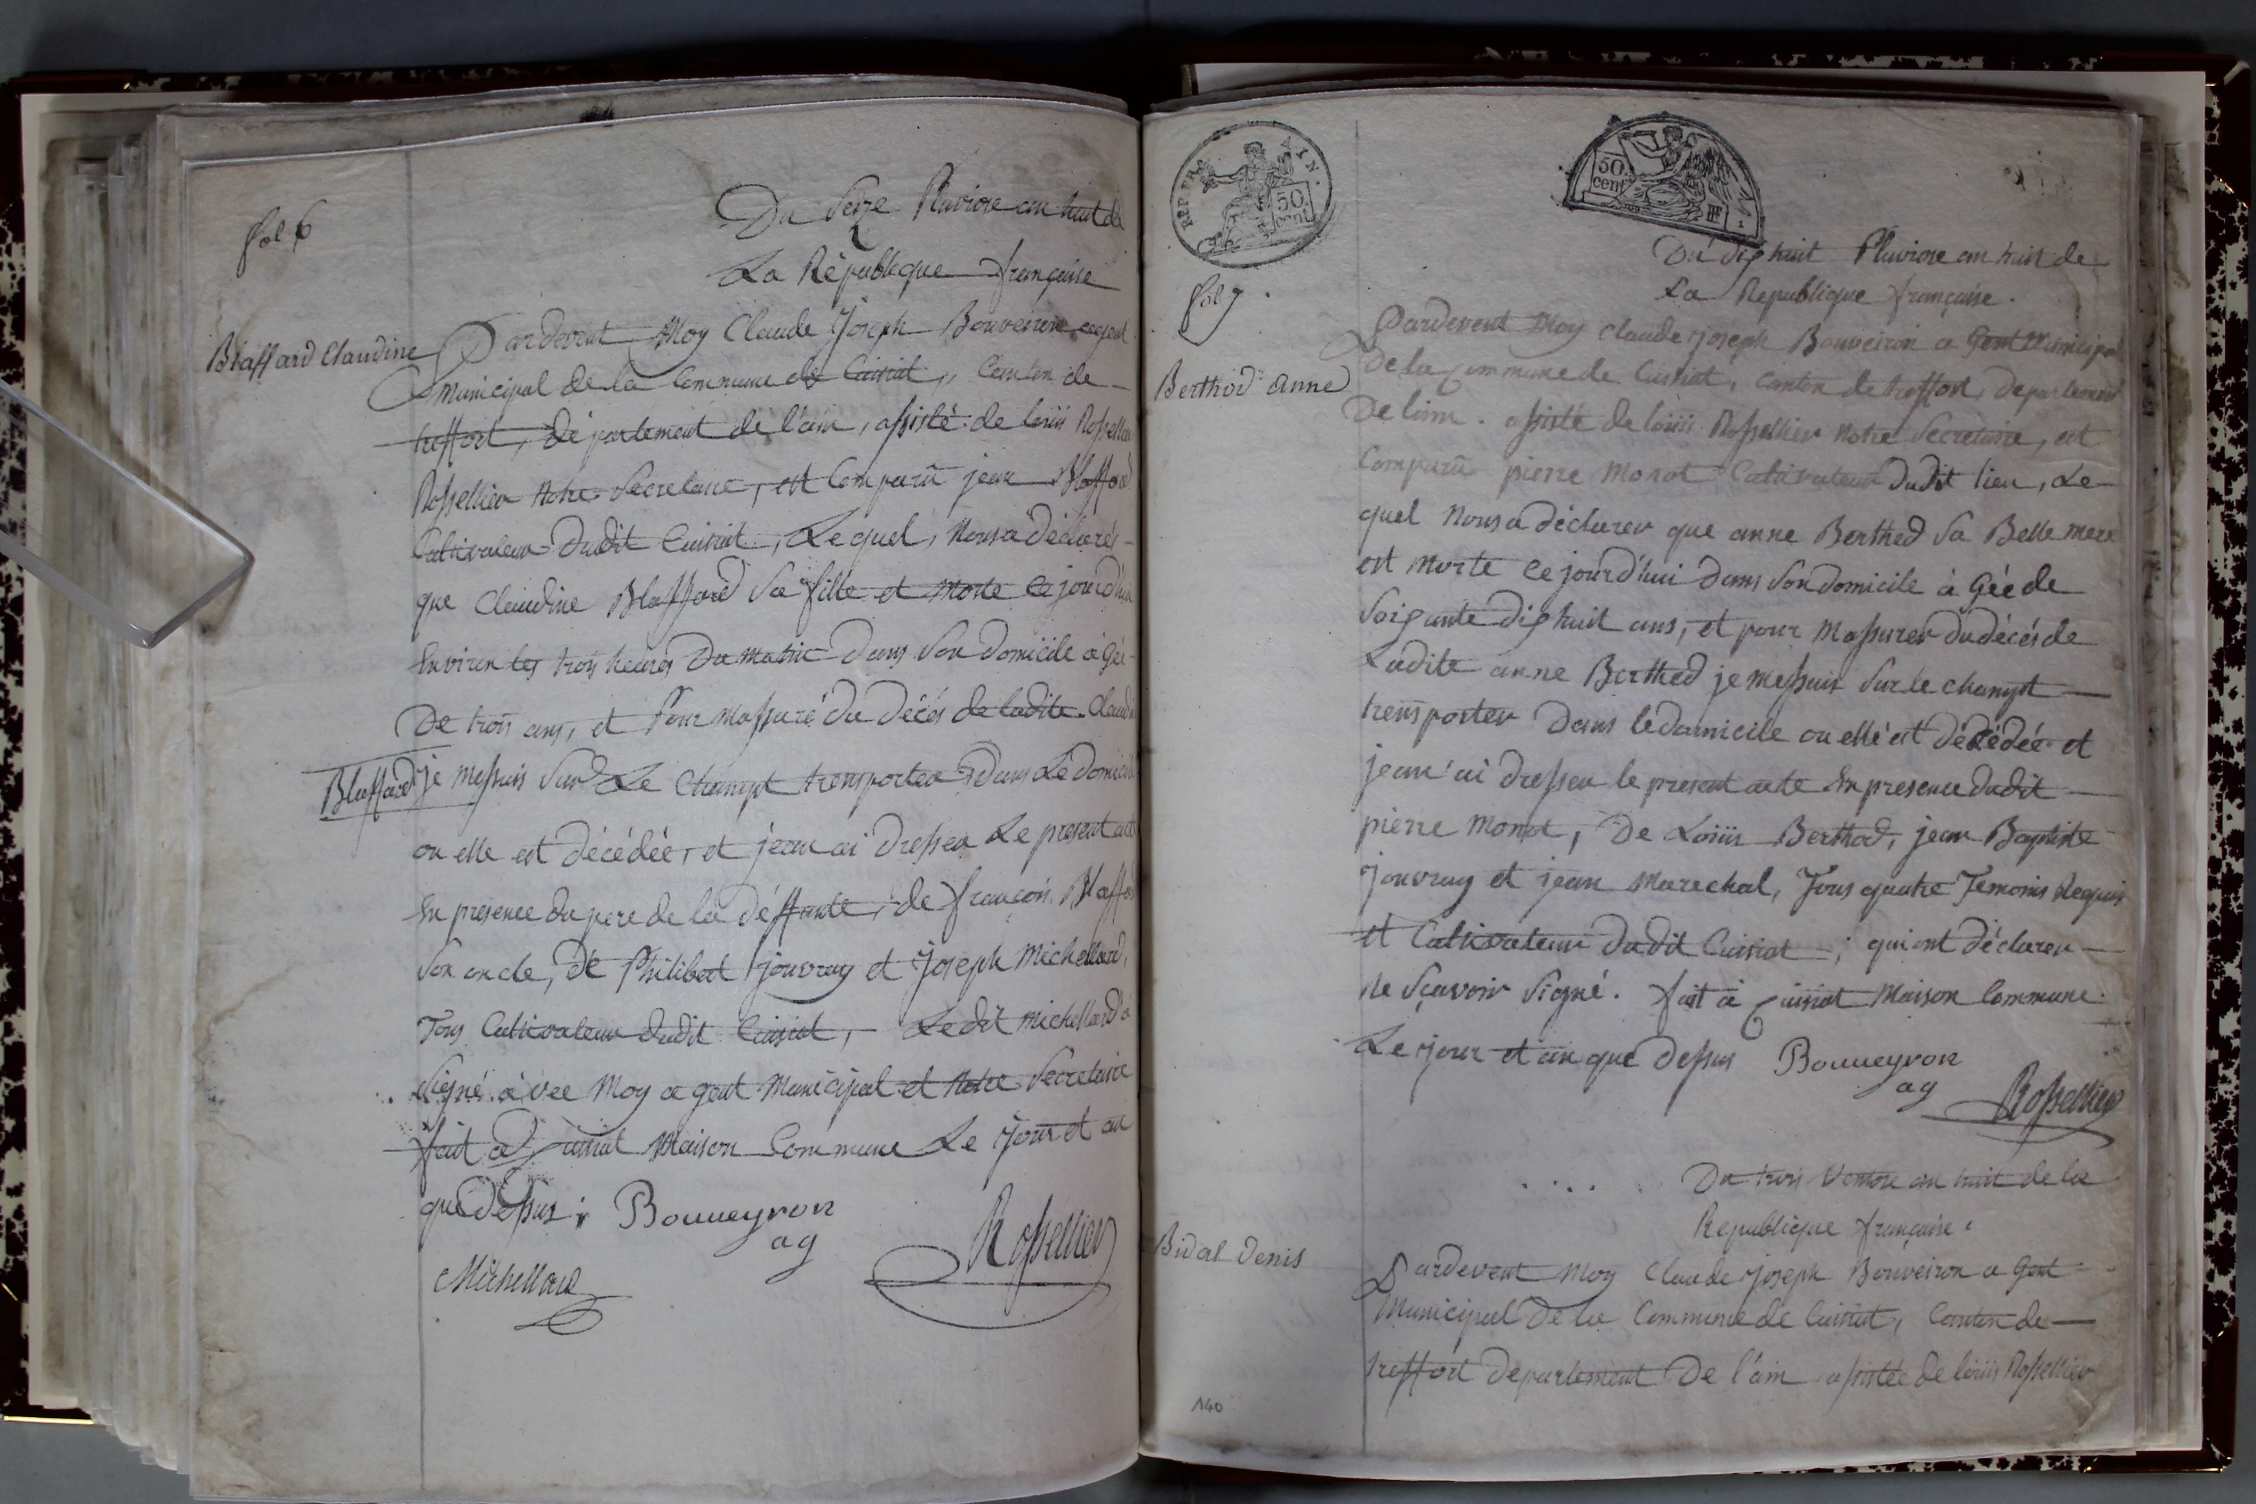 fol 6
Du Seize Pluviose an huit de
La Républeque française
Blaffard Claudine
Pardevent Moy Claude Joseph Bouveiron agent
Municipal de la Commune de Cuisiat, Canton de
treffort, département de l'ain, assisté de loüis Rossellier
Rossellier Notre Secretaire, est Comparü jean Blaffard
Cultivateur Dudit Cuisiat, Lequel, Nous a déclarés
que Claudine Blaffard Sa fille et Morte Ce jourd'hui
Environ les trois heures Du Matin Dans Son Domicile à Gée
De trois ans, et Pour Massuré du Décés de ladite Claudine
Blaffard je messuis Sur Le Champt transporter dans Le domicile
ou elle est décédée, et jeanai Dresser Le present acte
En présence du pere de la déffunte, de françois Blaffard
Son oncle, de Philibert jouvray et Joseph Michellard,
Tous Cultivateur dudit Cuisiat, Ledit Michellard à
Signé àvec Moy agent Municipal et Notre Secretaire
fait a Cuisiat Maison Commune Le Jour et an
que Dessus Bouueyron
ag
Rossellier
Michellard
REP. FRA
50.
cent.
50.
cent.
fol 7
Du dix huit Pluviose an huit de
La Republique française.
Berthod anne
Pardevent Moy Claude Joseph Bouveiron a Gent Municipal
De la Commune de Cuisiat, canton de treffort, departement
De l'ain. assisté de loüis Rossellier Notre Secretaire, est
Comparü pierre Monot Cultivateur Dudit lieu, Le
quel Nous a déclarer que anne Berthod Sa Belle mere
est Morte Ce jourd'hui Dans Son domicile à Gée de
Soixante dix huit ans, et pour Massurer du décés de
Ladite anne Berthod je messuis Sur le champt
transporter Dans le domicile ou elle est décédée et
jean'ai dresser le present acte En presence dudit
pierre Monot, De Loüis Berthod, jean Baptiste
Jouvray et jean Marechal, Tous quatre Temoins Requis
et Cultivateur dudit Cuisiat; qui ont déclarer
ne Sçavoir Signé. fait à Cuisiat Maison Commune.
Le jour et an que Dessus Bouueyron
ag
Rossellier
Du trois Ventose an huit de la
Republique française.
Bidal Denis
Pardevent Moy Claude Joseph Bouveiron a Gent
Municipal De la Commune de Cuisiat, Canton de
treffort departement De l'ain assistée de loüis Rossellier
140